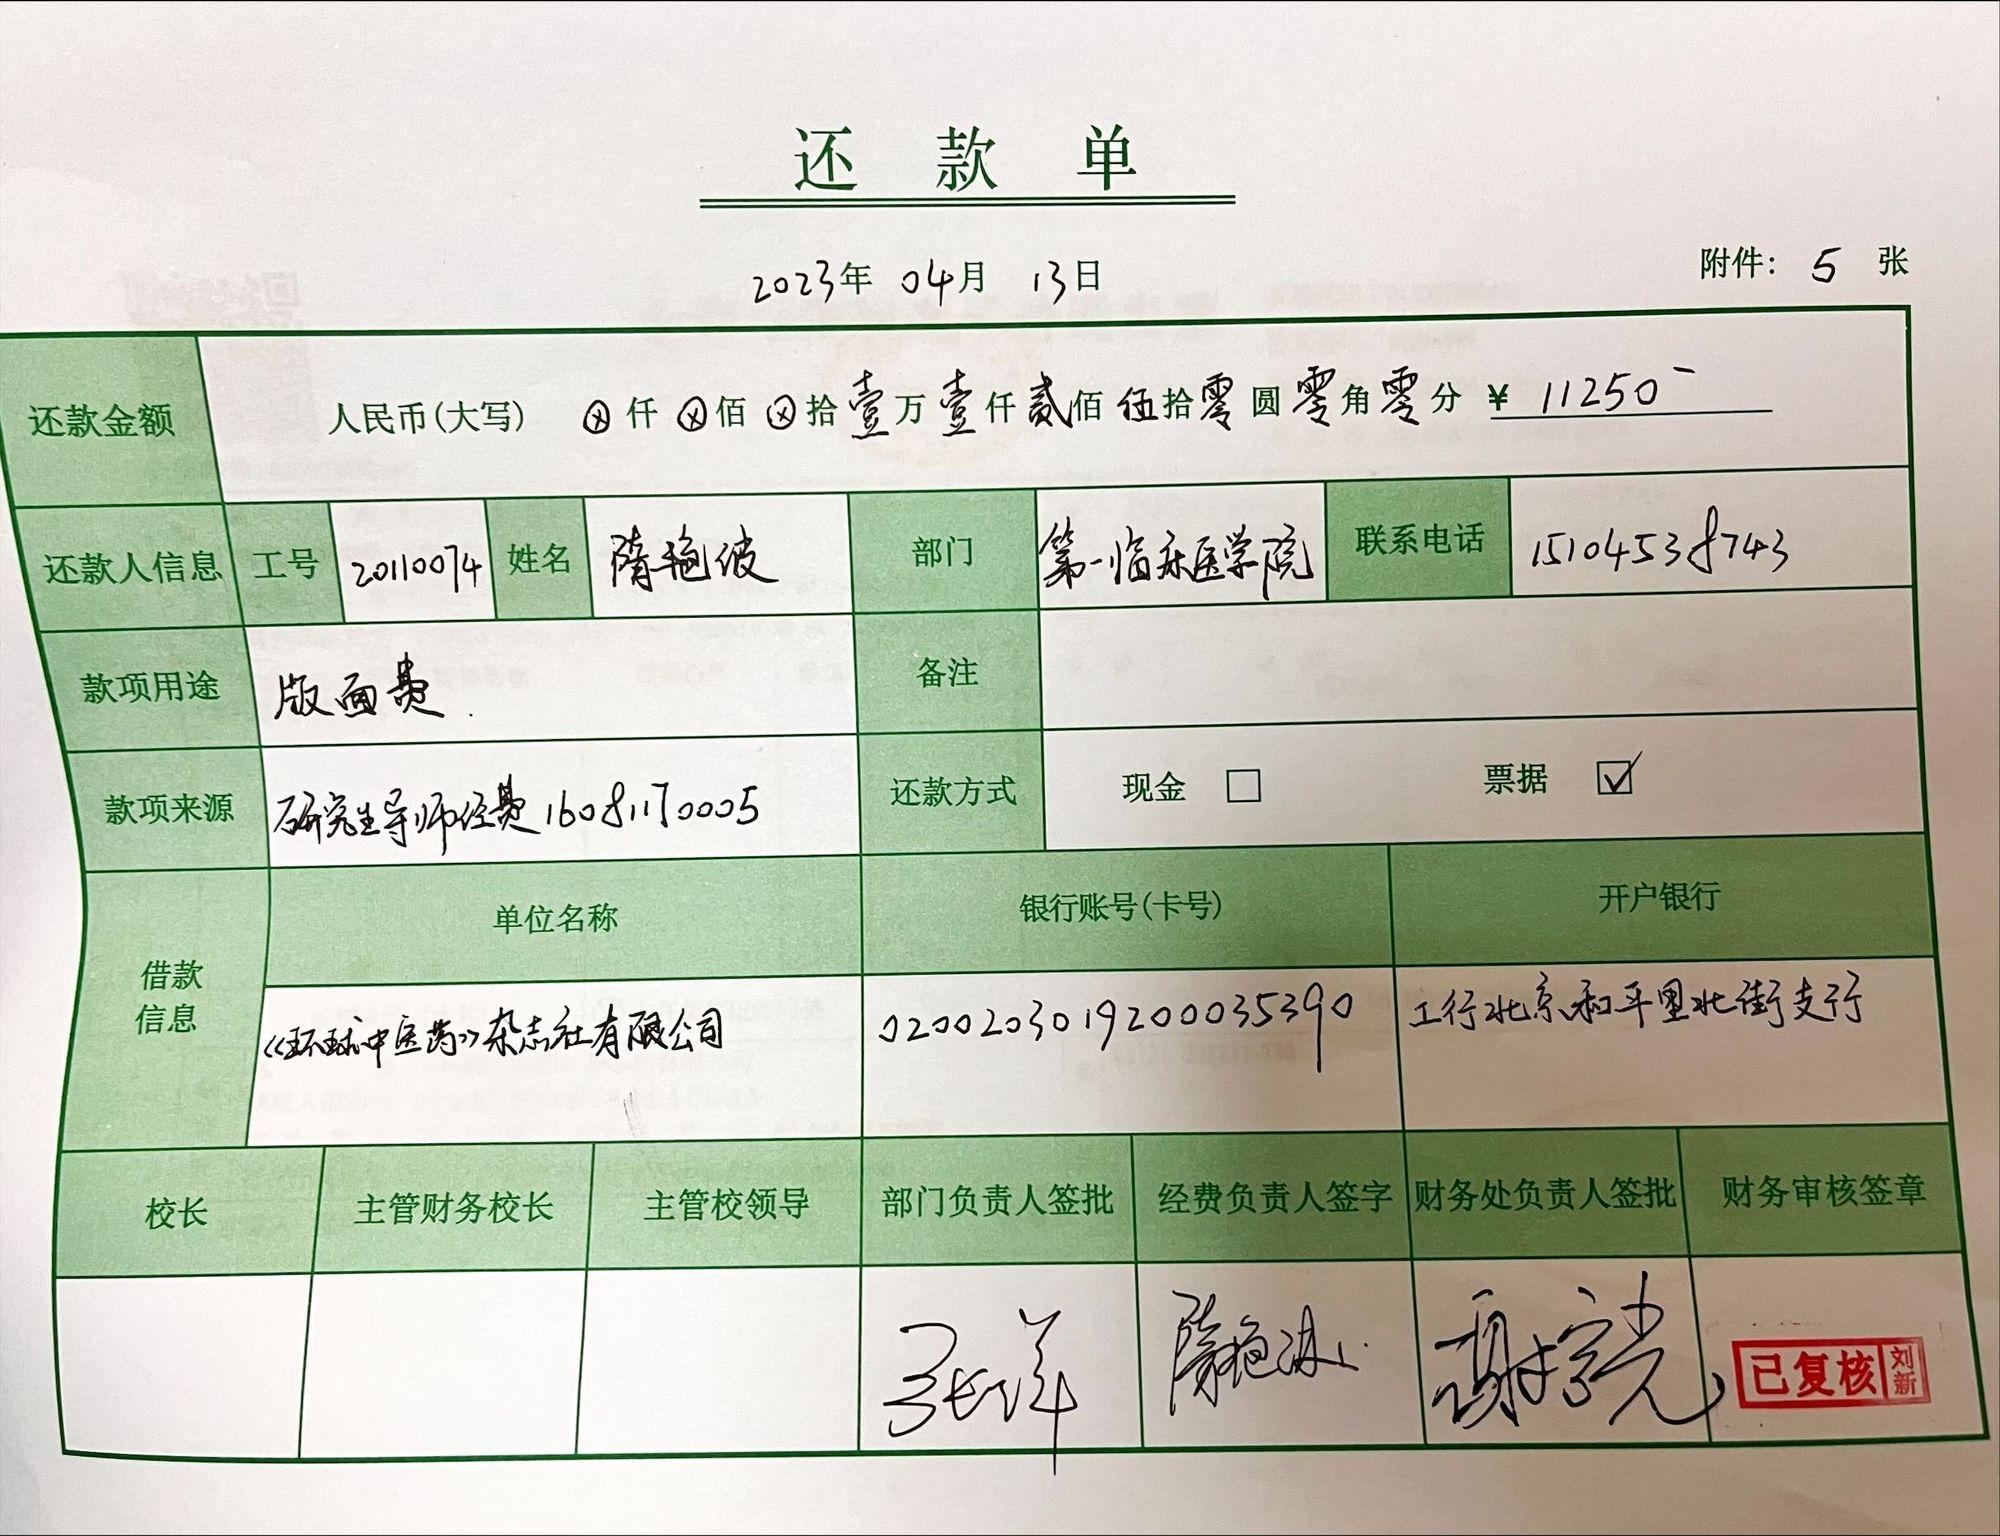 还款单
2023年 04月 13日
附件: 5 张
还款金额 人民币(大写) ⊗仟⊗佰⊗拾壹万壹仟贰佰伍拾零圆零角零分 ¥ 11250-
还款人信息 工号 20110074 姓名 隋艳波 部门 第一临床医学院 联系电话 15104538743
款项用途 版面费. 备注
款项来源 研究生导师经费16081170005 还款方式 现金 □ 票据 ☑
借款信息 单位名称 银行账号(卡号) 开户银行
《环球中医药》杂志社有限公司 0200203019200035390 工行北京和平里北街支行
校长 主管财务校长 主管校领导 部门负责人签批 经费负责人签字 财务处负责人签批 财务审核签章
张洋 隋艳波 谢宇光 已复核 刘新